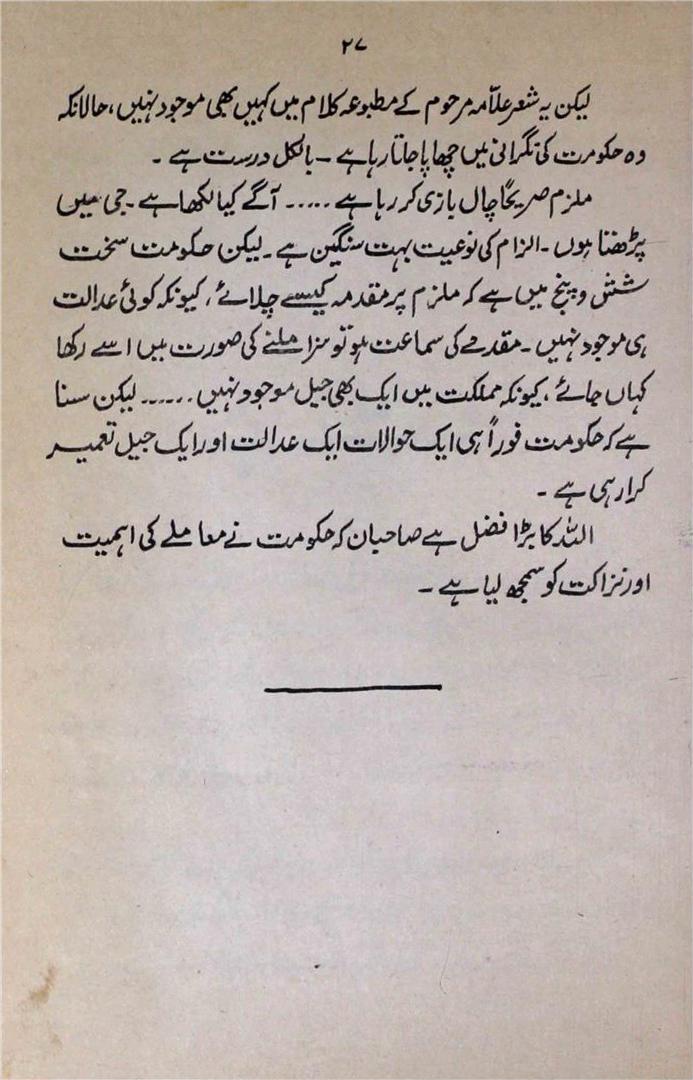 ۲۷
لیکن یہ شعر علّامہ مرحوم کے مطبوعہ کلام میں کہیں بھی موجود نہیں، حالانکہ
وہ حکومت کی نگرانی میں چھاپا جاتا رہا ہے ۔ بالکل درست ہے ۔
ملزم صریحاً چال بازی کر رہا ہے ..... آگے کیا لکھا ہے ۔ جی میں
پڑھتا ہوں ۔ الزام کی نوعیت بہت سنگین ہے ۔ لیکن حکومت سخت
شش و پنج میں ہے کہ ملزم پر مقدمہ کیسے چلائے، کیونکہ کوئی عدالت
ہی موجود نہیں ۔ مقدمے کی سماعت ہو تو سزا ملنے کی صورت میں اسے رکھا
کہاں جائے، کیونکہ مملکت میں ایک بھی جیل موجود نہیں ...... لیکن سنا
ہے کہ حکومت فوراً ہی ایک حوالات ایک عدالت اور ایک جیل تعمیر
کرا رہی ہے ۔
اللہ کا بڑا فضل ہے صاحبان کہ حکومت نے معاملے کی اہمیت
اور نزاکت کو سمجھ لیا ہے ۔